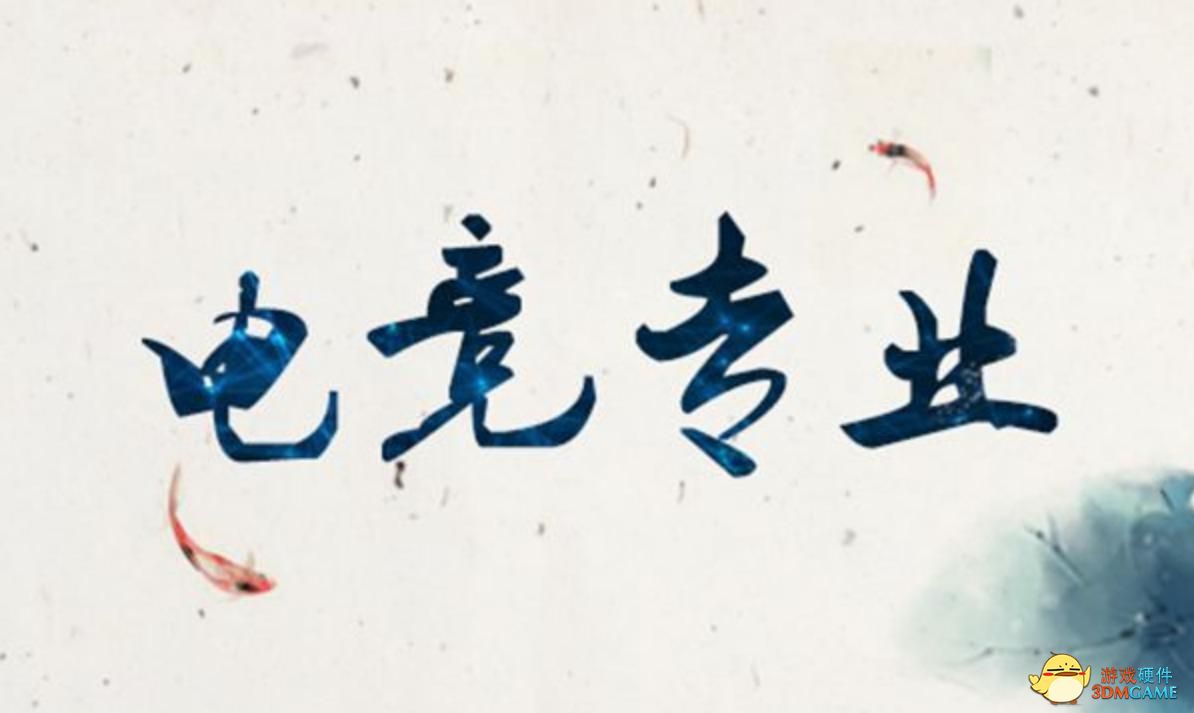 电竞专业
游戏硬件
3DMGAME